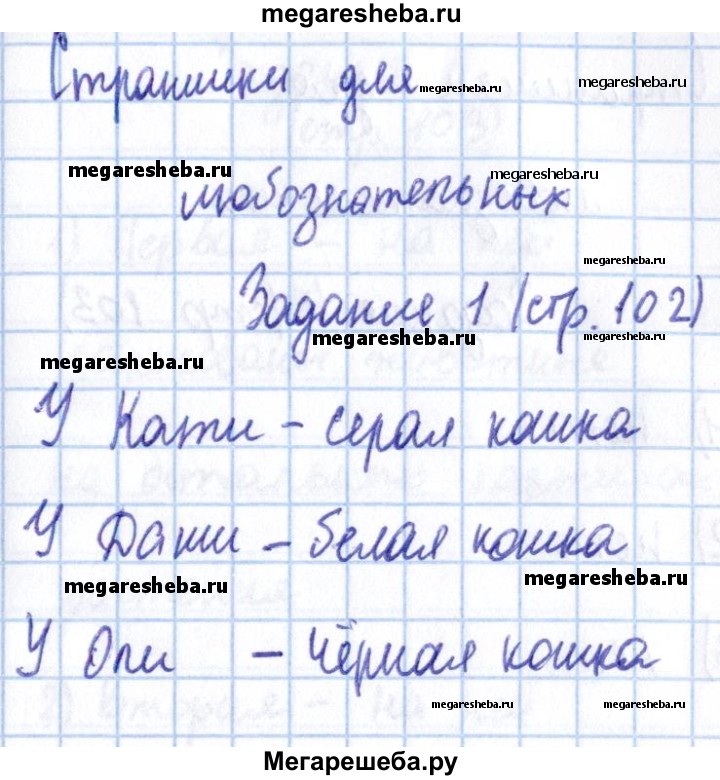 megaresheba.ru
Странички для megaresheba.ru megaresheba.ru
megaresheba.ru megaresheba.ru
любознательных
megaresheba.ru
Задание 1 (стр. 102)
megaresheba.ru megaresheba.ru
megaresheba.ru
У Кати – серая кошка
У Даши – белая кошка
megaresheba.ru megaresheba.ru
У Оли – чёрная кошка
megaresheba.ru megaresheba.ru
Мегарешеба.ру